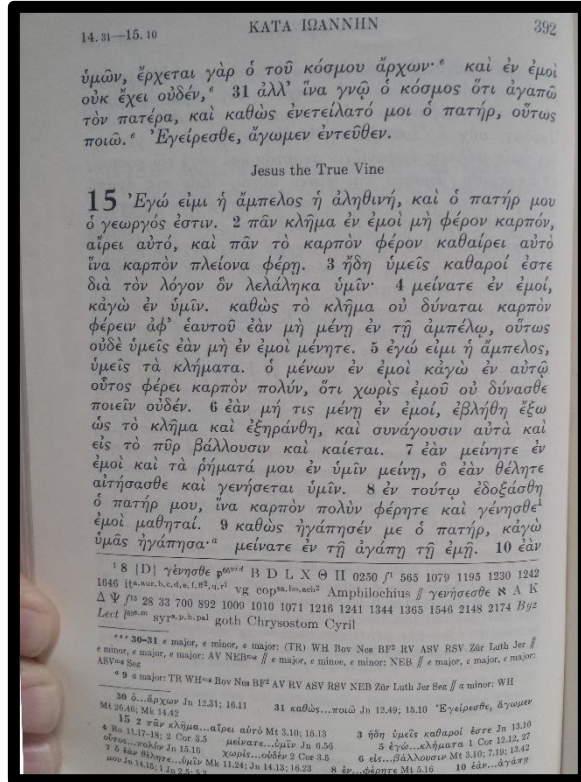 14. 31—15. 10 ΚΑΤΑ ΙΩΑΝΝΗΝ 392
ὑμῶν, ἔρχεται γὰρ ὁ τοῦ κόσμου ἄρχων·ᵉ καὶ ἐν ἐμοὶ
οὐκ ἔχει οὐδέν,ᵉ 31 ἀλλ’ ἵνα γνῷ ὁ κόσμος ὅτι ἀγαπῶ
τὸν πατέρα, καὶ καθὼς ἐνετείλατό μοι ὁ πατήρ, οὕτως
ποιῶ.ᵉ Ἐγείρεσθε, ἄγωμεν ἐντεῦθεν.
Jesus the True Vine
15 Ἐγώ εἰμι ἡ ἄμπελος ἡ ἀληθινή, καὶ ὁ πατήρ μου
ὁ γεωργός ἐστιν. 2 πᾶν κλῆμα ἐν ἐμοὶ μὴ φέρον καρπόν,
αἴρει αὐτό, καὶ πᾶν τὸ καρπὸν φέρον καθαίρει αὐτὸ
ἵνα καρπὸν πλείονα φέρῃ. 3 ἤδη ὑμεῖς καθαροί ἐστε
διὰ τὸν λόγον ὃν λελάληκα ὑμῖν· 4 μείνατε ἐν ἐμοί,
κἀγὼ ἐν ὑμῖν. καθὼς τὸ κλῆμα οὐ δύναται καρπὸν
φέρειν ἀφ’ ἑαυτοῦ ἐὰν μὴ μένῃ ἐν τῇ ἀμπέλῳ, οὕτως
οὐδὲ ὑμεῖς ἐὰν μὴ ἐν ἐμοὶ μένητε. 5 ἐγώ εἰμι ἡ ἄμπελος,
ὑμεῖς τὰ κλήματα. ὁ μένων ἐν ἐμοὶ κἀγὼ ἐν αὐτῷ
οὗτος φέρει καρπὸν πολύν, ὅτι χωρὶς ἐμοῦ οὐ δύνασθε
ποιεῖν οὐδέν. 6 ἐὰν μή τις μένῃ ἐν ἐμοί, ἐβλήθη ἔξω
ὡς τὸ κλῆμα καὶ ἐξηράνθη, καὶ συνάγουσιν αὐτὰ καὶ
εἰς τὸ πῦρ βάλλουσιν καὶ καίεται. 7 ἐὰν μείνητε ἐν
ἐμοὶ καὶ τὰ ῥήματά μου ἐν ὑμῖν μείνῃ, ὃ ἐὰν θέλητε
αἰτήσασθε καὶ γενήσεται ὑμῖν. 8 ἐν τούτῳ ἐδοξάσθη
ὁ πατήρ μου, ἵνα καρπὸν πολὺν φέρητε καὶ γένησθε¹
ἐμοὶ μαθηταί. 9 καθὼς ἠγάπησέν με ὁ πατήρ, κἀγὼ
ὑμᾶς ἠγάπησα·ᵃ μείνατε ἐν τῇ ἀγάπῃ τῇ ἐμῇ. 10 ἐὰν
¹ 8 {D} γένησθε p⁶⁶ᵛⁱᵈ B D L X Θ Π 0250 f¹ 565 1079 1195 1230 1242
1646 itᵃ,ᵃᵘʳ,ᵇ,ᶜ,ᵈ,ᵉ,ᶠ,ᶠᶠ²,q,ʳ¹ vg copˢᵃ,ᵇᵒ,ᵃᶜʰ² Amphilochius // γενήσεσθε א A K
Δ Ψ f¹³ 28 33 700 892 1009 1010 1071 1216 1241 1344 1365 1546 2148 2174 Byz
Lect syrˢ,ᵖ,ʰ,ᵖᵃˡ goth Chrysostom Cyril
ᵉ ᵉ ᵉ 30–31 e major, e minor, e major: (TR) WH Bov Nes BF² RV ASV RSV Zür Luth Jer //
e minor, e major, e major: AV NEBᵐᵍ // e major, e minor, e minor: NEB // e major, e major, e major:
ASVᵐᵍ Seg
ᵃ 9 a major: TR WHᵐᵍ Bov Nes BF² AV RV ASV RSV NEB Zür Luth Jer Seg // a minor: WH
30 ὁ...ἄρχων Jn 12.31; 16.11 31 καθὼς...ποιῶ Jn 12.49; 15.10 Ἐγείρεσθε, ἄγωμεν
Mt 26.46; Mk 14.42
15 2 πᾶν κλῆμα...αἴρει αὐτό Mt 3.10; 15.13 3 ἤδη ὑμεῖς καθαροί ἐστε Jn 13.10
4 Ro 11.17-18; 2 Cor 3.5 μείνατε...ὑμῖν Jn 6.56 5 ἐγώ...κλήματα 1 Cor 12.12, 27
οὗτος...πολύν Jn 15.16 χωρὶς...οὐδέν 2 Cor 3.5 6 εἰς...βάλλουσιν Mt 3.10; 7.19; 13.42
7 ὃ ἐὰν θέλητε...ὑμῖν Mk 11.24; Jn 14.13; 16.23 8 ἐν...φέρητε Mt 5.16 10 ἐὰν...ἀγάπῃ
μου Jn 14.15; 1 Jn 2.5; 5.3